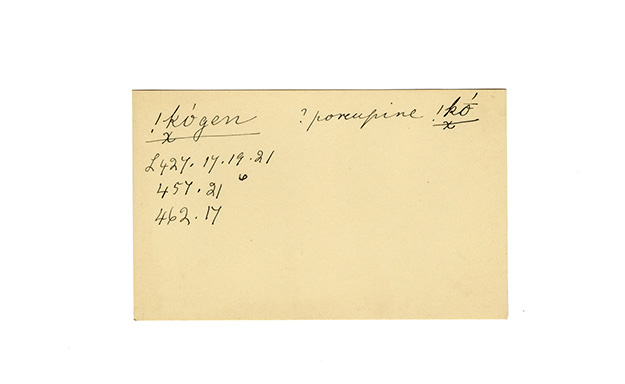 !kó̱gen ?porcupine !kó̱
x x
L427. 17. 19. 21
457. 21
6
462. 17